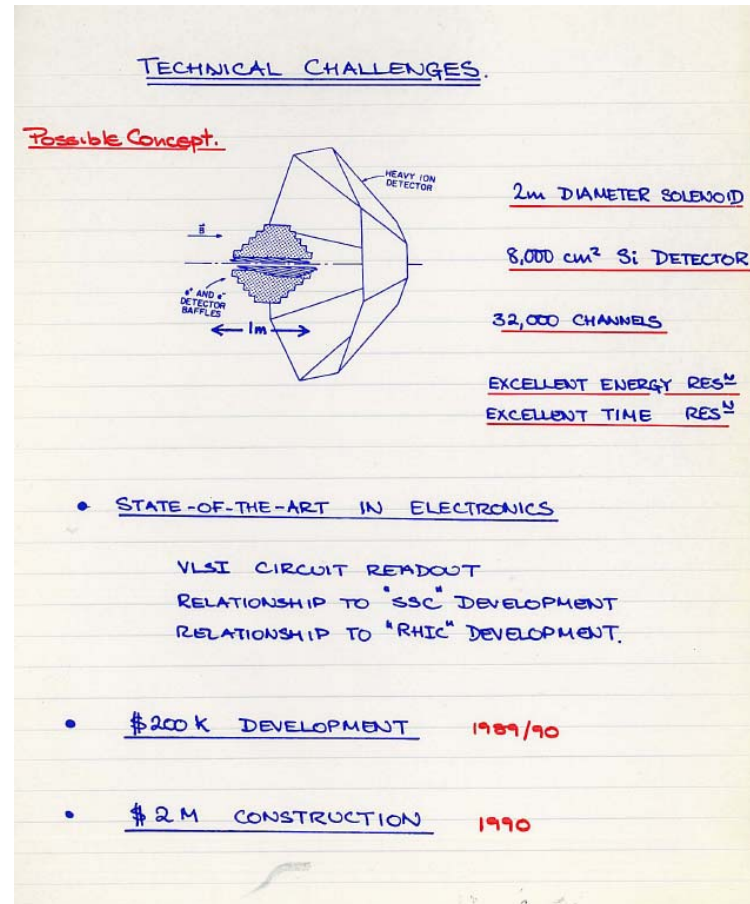 TECHNICAL CHALLENGES.
Possible Concept.
HEAVY ION
DETECTOR
B
e⁺ AND e⁻
DETECTOR
BAFFLES
1m
2m DIAMETER SOLENOID
8,000 cm² Si DETECTOR
32,000 CHANNELS
EXCELLENT ENERGY RESᴺ
EXCELLENT TIME RESᴺ
• STATE-OF-THE-ART IN ELECTRONICS
VLSI CIRCUIT READOUT
RELATIONSHIP TO "SSC" DEVELOPMENT
RELATIONSHIP TO "RHIC" DEVELOPMENT.
• $200K DEVELOPMENT 1989/90
• $2M CONSTRUCTION 1990